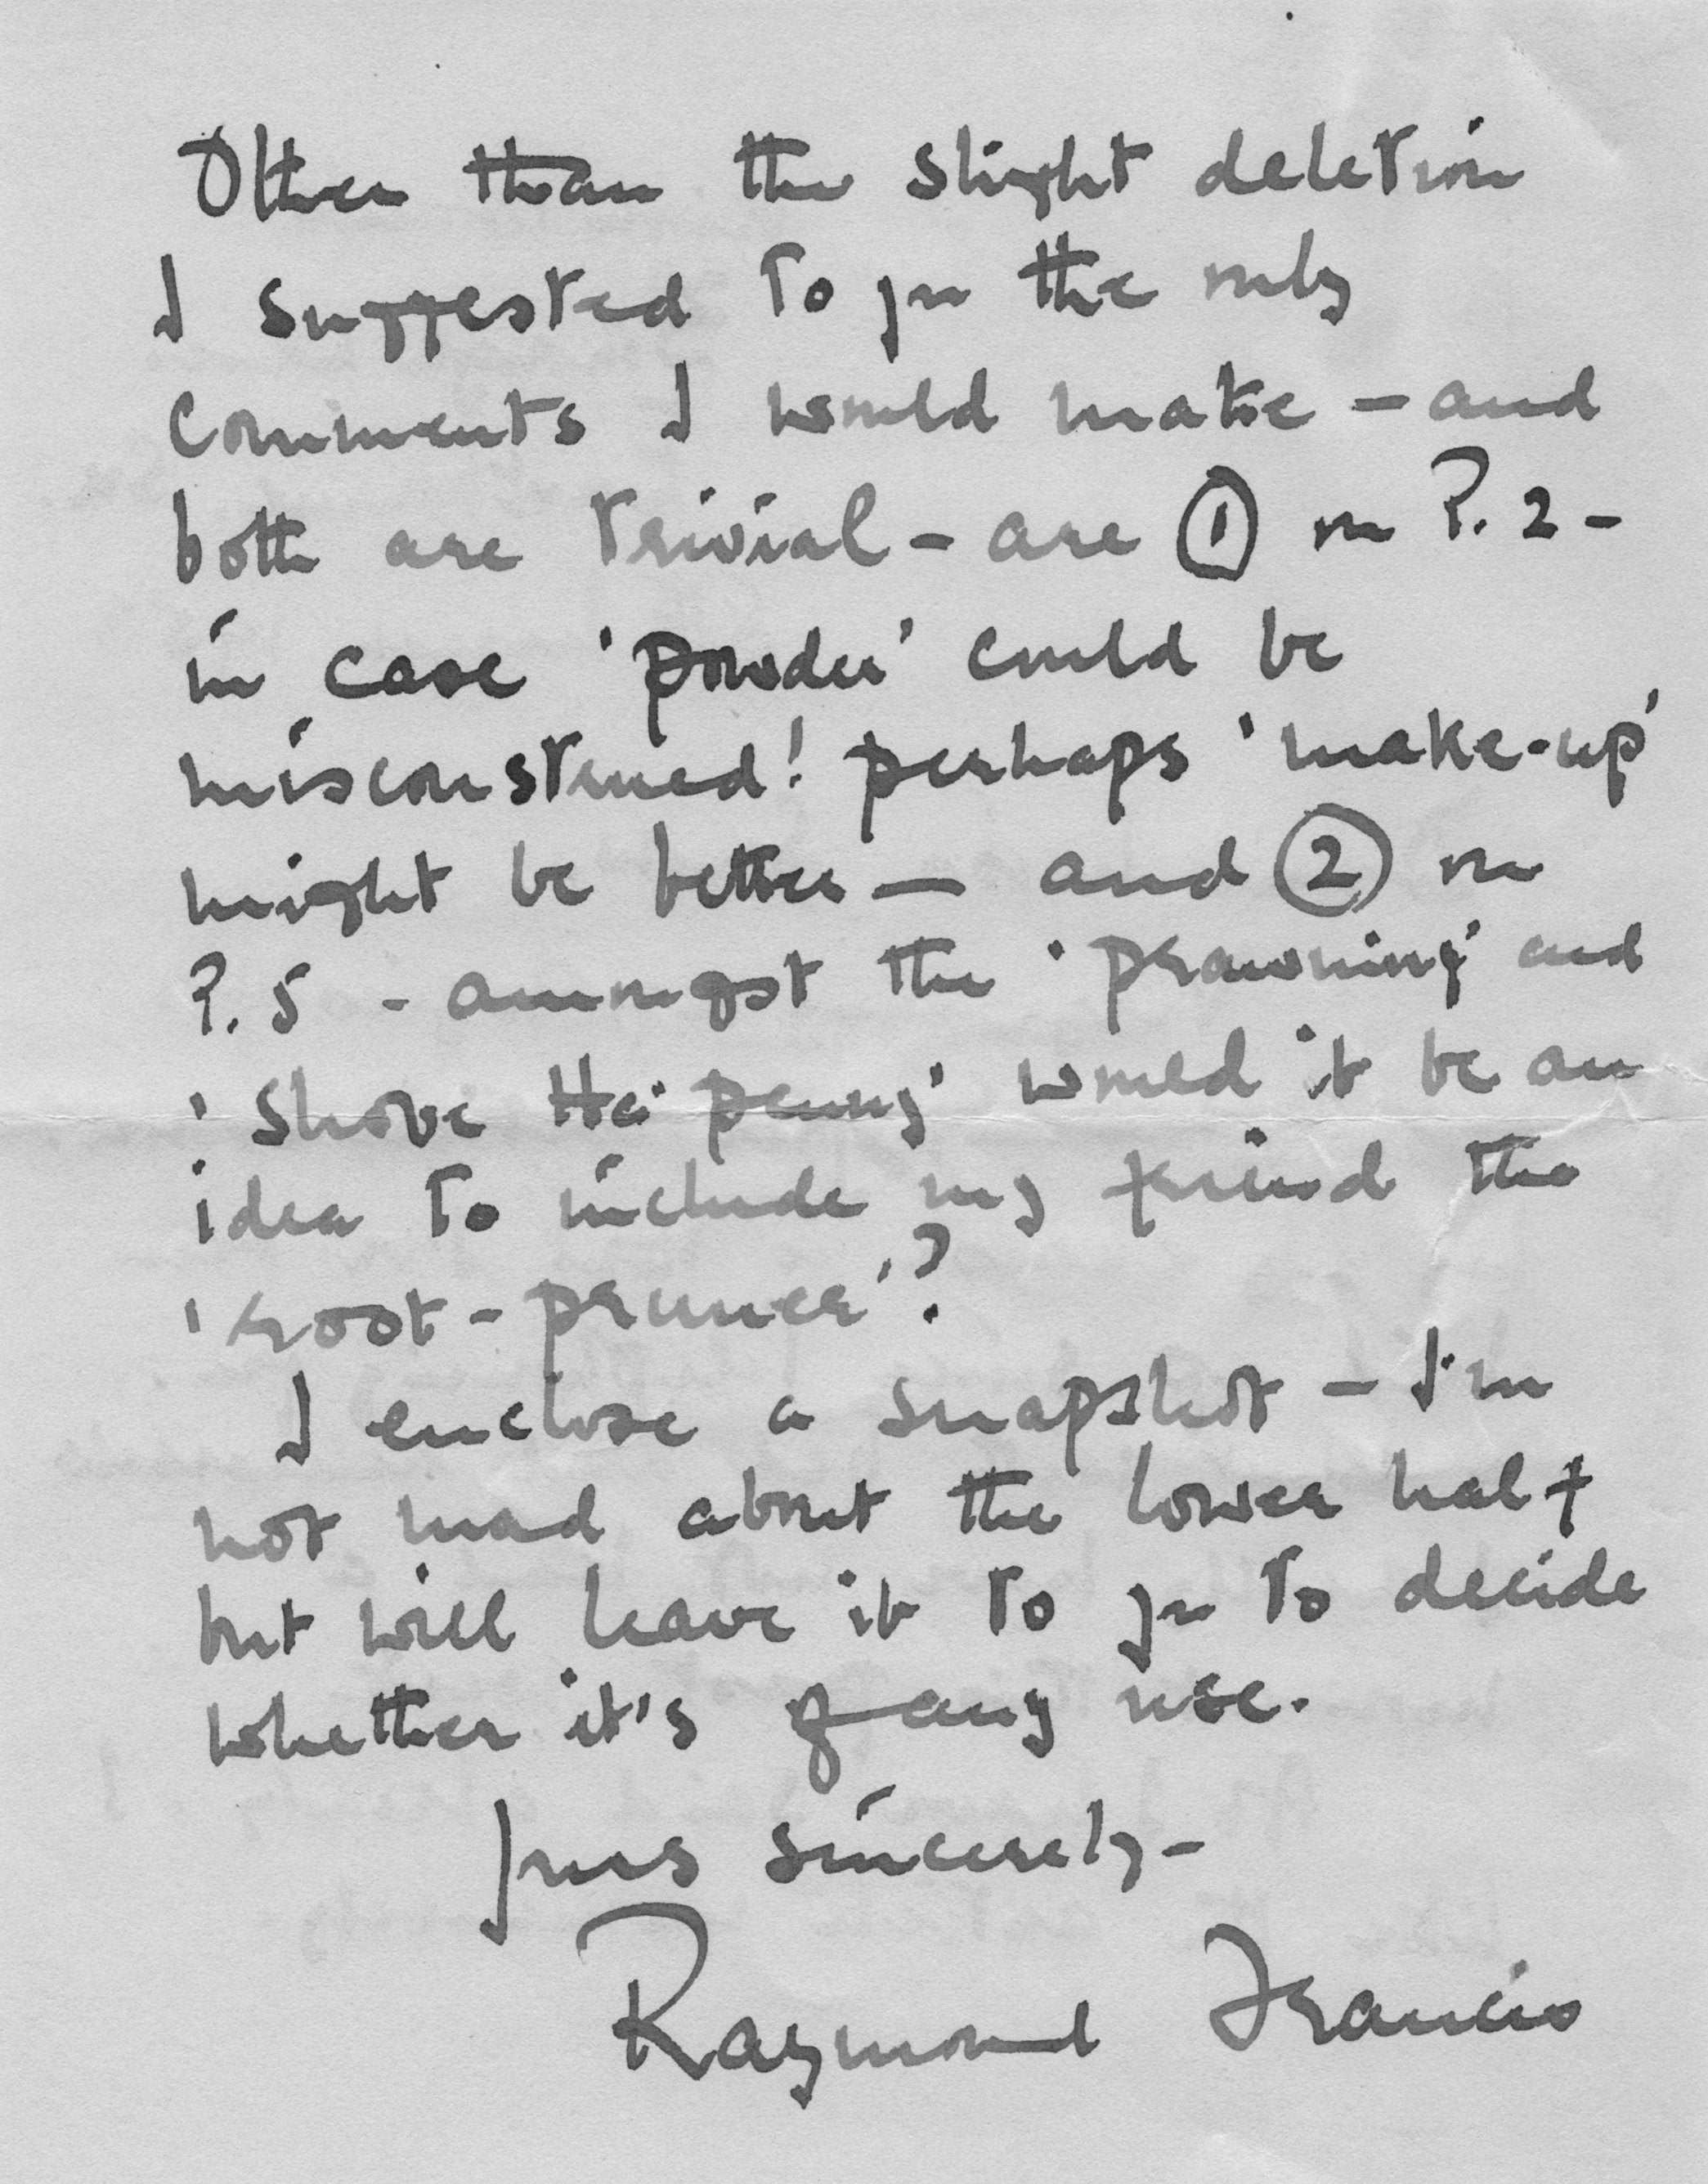 Other than the slight deletion
I suggested to you the only
comments I would make – and
both are trivial – are ① on P. 2 –
in case 'powder' could be
misconstrued! perhaps 'make-up'
might be better – and ② on
P. 5 - amongst the 'prawning' and
'Shove Ha'penny' would it be an
idea to include my friend the
'root-pruner'?
I enclose a snapshot – I'm
not mad about the lower half
but will leave it to you to decide
whether it's of any use.
Yours sincerely –
Raymond Francis